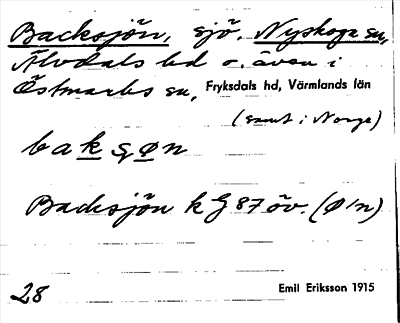 Backsjön, sjö. Nyskoga sn,
Älvdals hd o. även i
Östmarks sn, Fryksdals hd, Värmlands län
(samt i Norge)
Backsjön k G 87 öv. (Ø/n)
28 Emil Eriksson 1915